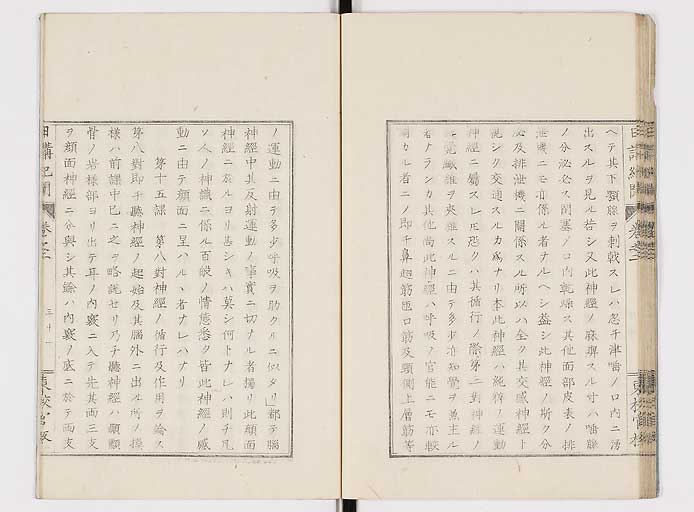 ヘテ其下顎腺ヲ刺戟スレハ忽チ津唾ノ口内ニ湧
出スルヲ見ル若シ又此神経ノ麻痺スル寸ハ唾腺
ノ分泌必ス閉塞ノ口内乾燥ス其他面部皮表ノ排
泄機ニモ亦係ル者ナルヘシ蓋シ此神経ノ斯ク分
泌及排泄機ニ関係スル所以ハ全ク其交感神経ト
シク交通スルカ為ナリ本此神経ハ純粋ノ運動
神経ニ属スレ𪜈恐クハ其循行ノ際第二対神経ノ
覚繊維ヲ夾雑スルニ由テ多少亦知覚ヲ兼主ル
者ナランカ其他尚此神経ハ呼吸ノ官能ニモ亦較
カル者ニノ即チ鼻翅筋匝口筋及頚側上層筋等
日講紀聞 巻之二
東校官板
ノ運動ニ由テ多少呼吸ヲ助クルニ似タリ」都テ脳
神経中其反射運動ノ事実ニ切ナル者獨リ此顔面
神経ニ於ルヨリ甚シキハ莫シ何トナレハ則チ凡
ソ人ノ神識ニ係ル百般ノ情態悉ク皆此神経ノ感
動ニ由テ顔面ニ呈ハルヽ者ナレハナリ
第十五課 第八対神経ノ循行及作用ヲ論ス
第八対即チ聴神経ノ起始及其脳外ニ出ル所ノ模
様ハ前課中已ニ之ヲ略説セリ乃チ聴神経ハ顳顬
骨ノ岩様部ヨリ出テ耳ノ内竅ニ入テ先其両三支
ヲ顔面神経ニ分與シ其餘ハ内竅ノ底ニ於テ両支
日講紀聞 巻之二 三十一 東校官板